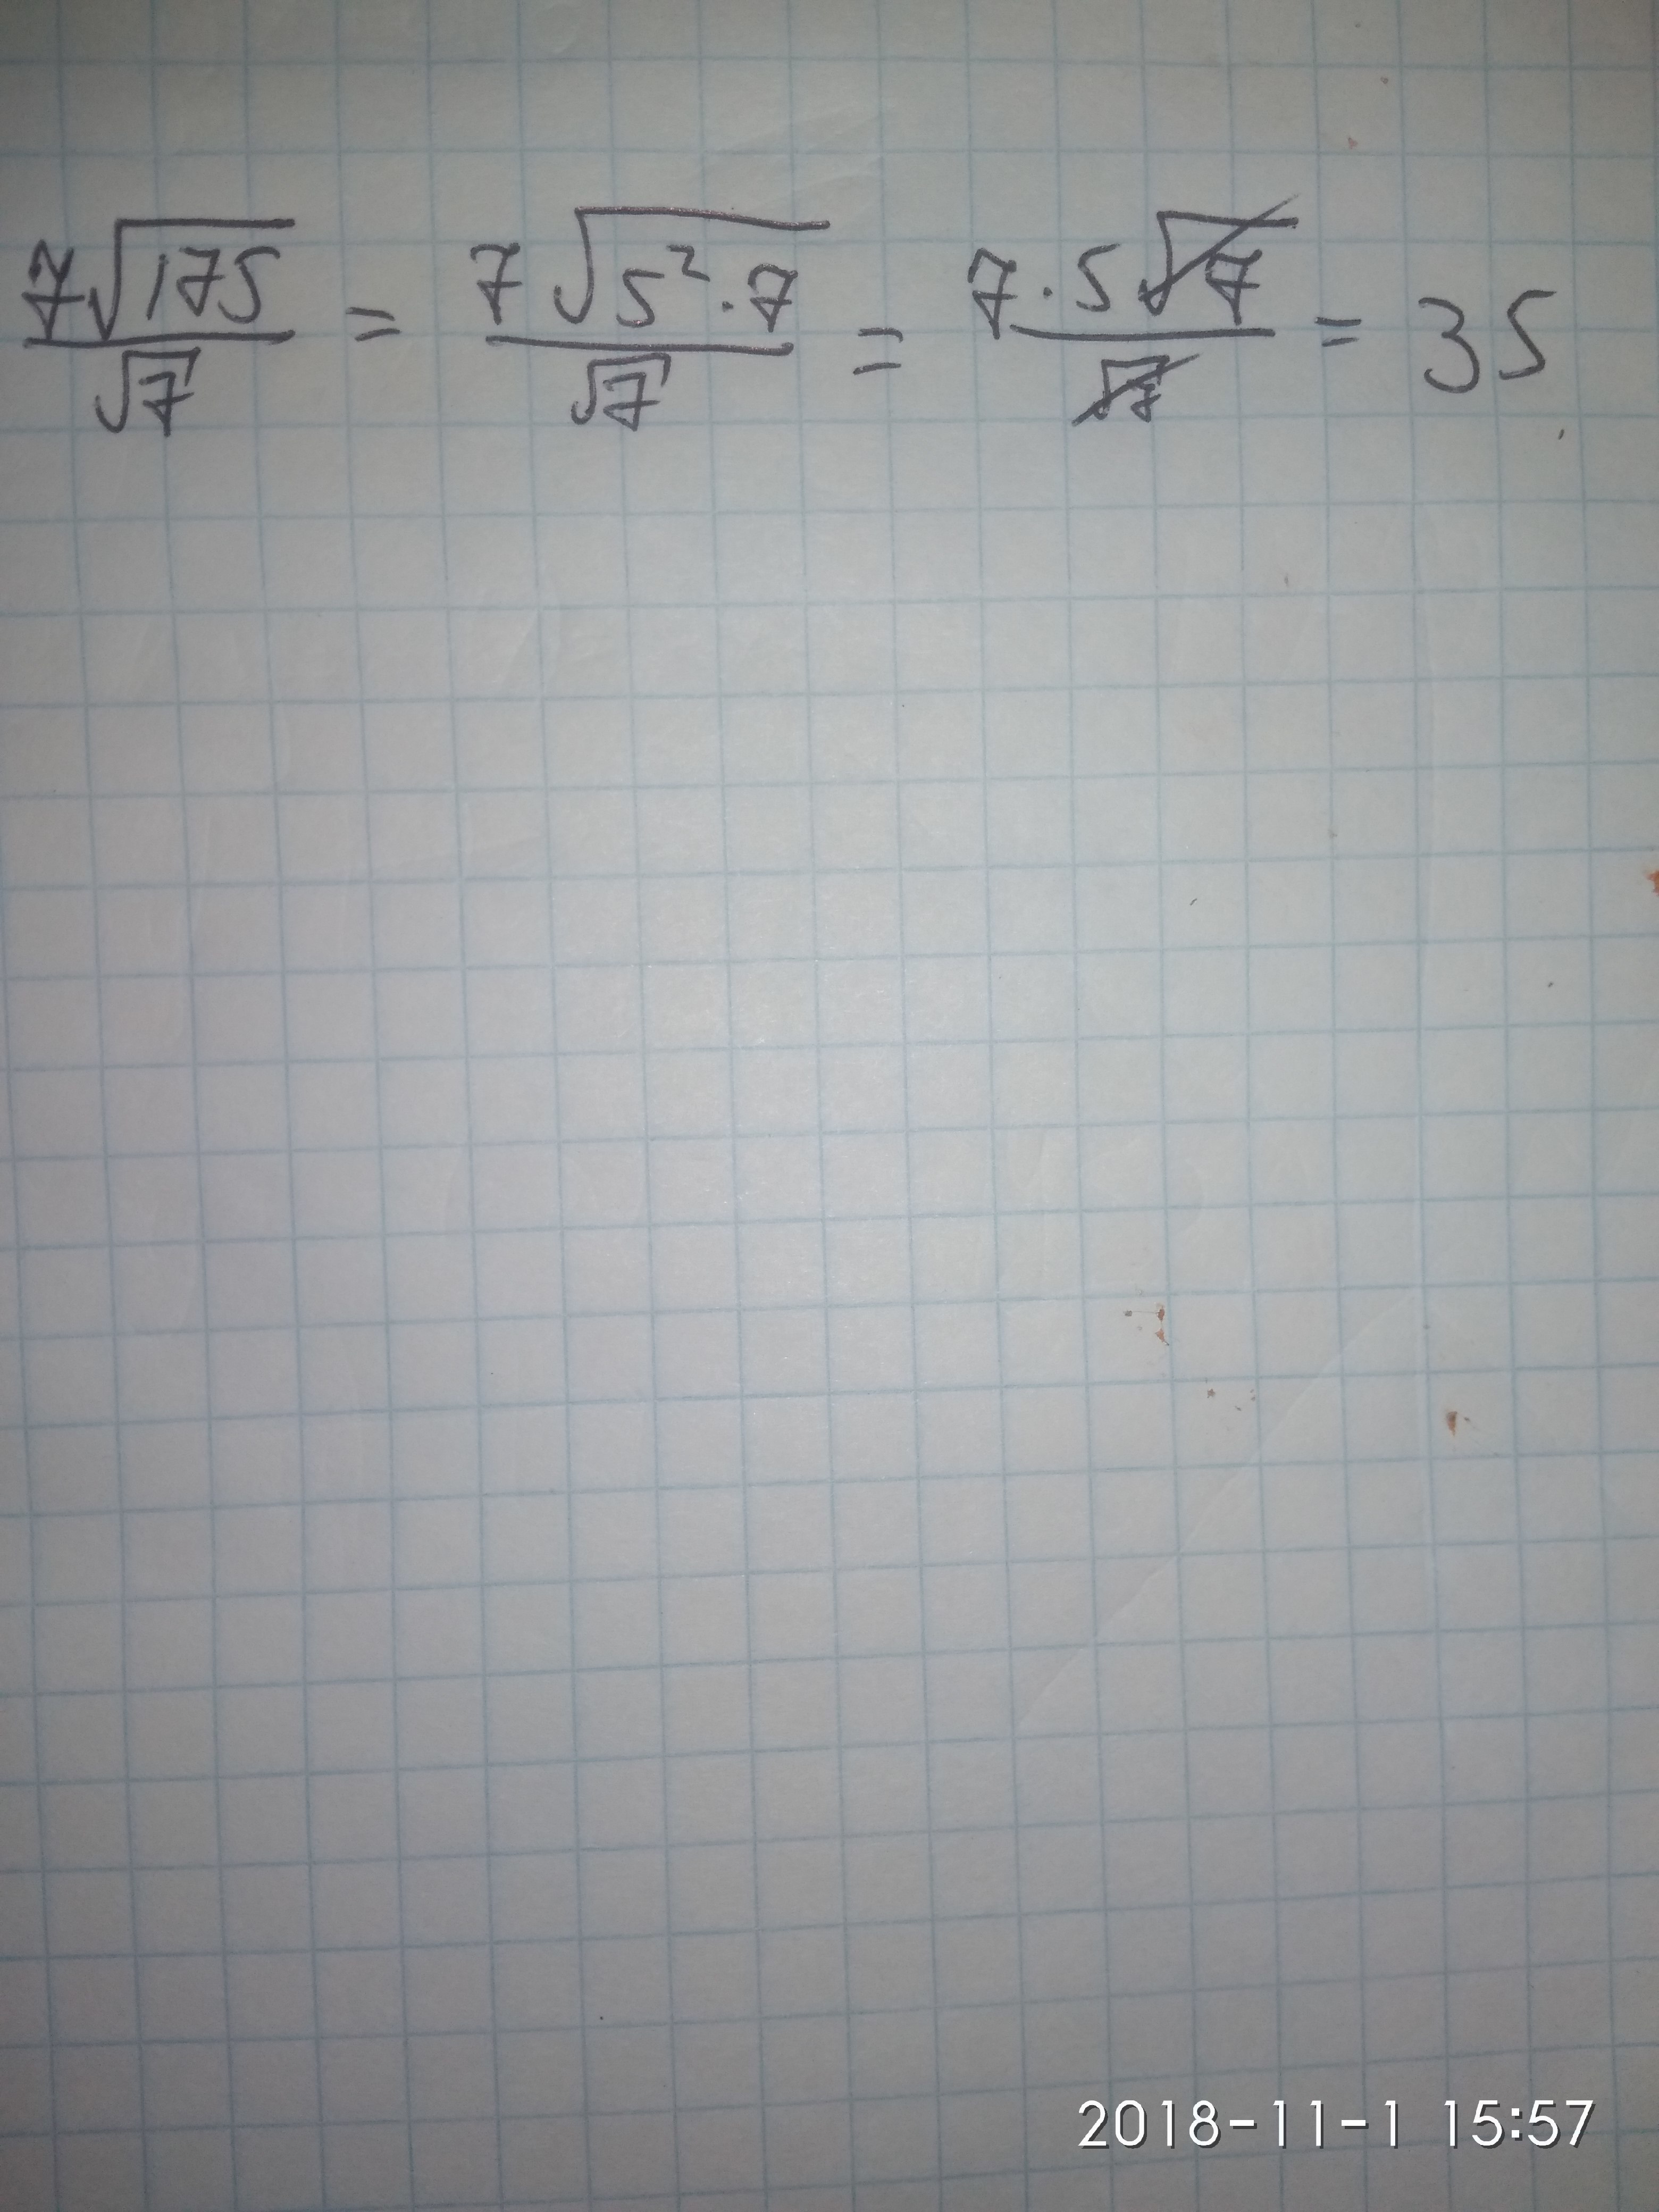 7√175/√7 = 7√5²·7/√7 = 7·5√7/√7 = 35
2018-11-1 15:57